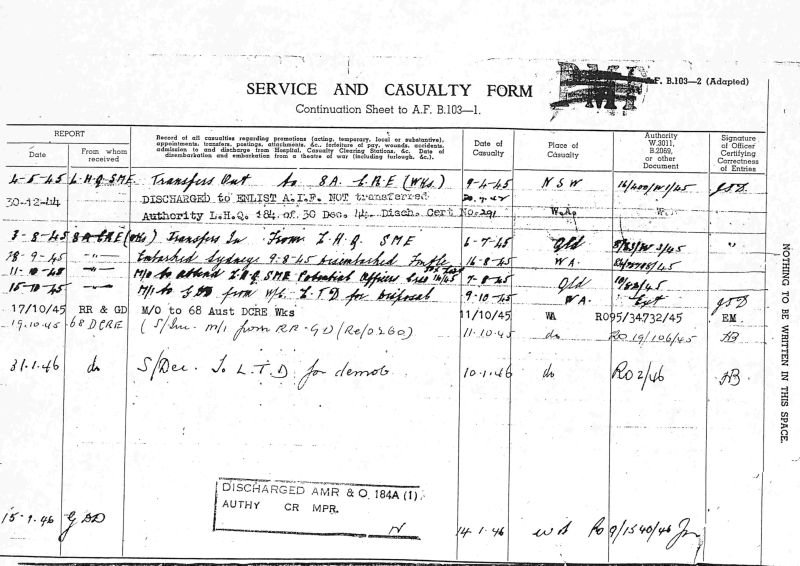 A.F. B.103—2 (Adapted)
SERVICE AND CASUALTY FORM
Continuation Sheet to A.F. B.103—1.
REPORT
Date
From whom received
Record of all casualties regarding promotions (acting, temporary, local or substantive),
appointments, transfers, postings, attachments, &c., forfeiture of pay, wounds, accidents,
admission to and discharge from Hospital, Casualty Clearing Stations, &c. Date of
disembarkation and embarkation from a theatre of war (including furlough, &c.).
Date of Casualty
Place of Casualty
Authority W.3011, B.2069, or other Document
Signature of Officer Certifying Correctness of Entries
4-5-45 L.H.Q SME Transfers Out to 8A. C.R.E (Wks.) 9-4-45 N S W
30-12-44 DISCHARGED to ENLIST A.I.F. NOT transferred
Authority L.H.Q. 184 of 30 Dec. 44. Disch. Cert No.291
3-8-45 8 A CRE (Wks) Transfers In From L H Q SME 6-7-45 Qld "
28-9-45 -"- Embarked Sydney 9-8-45 Disembarked 16-8-45 W A.
11-10-45 -"- M/O to attend L.H.Q SME Potential Officers 7-8-45 Qld 10/82/45
15-10-45 -"- M/I to GDD from W/C. L.T.D for disposal 9-10-45 W A.
17/10/45 RR & GD M/O to 68 Aust DCRE Wks 11/10/45 WA RO95/34732/45 EM
19.10.45 68 DCRE (S/Inc. M/I from RR-GD (Re/0260) 11.10.45 do RO 19/106/45 HB
31.1.46 do S/Dec. To L.T.D for demob 10.1.46 do RO 2/46 HB
DISCHARGED AMR & O. 184A (1)
AUTHY CR MPR.
N
15.1.46 GDD 14.1.46 W A RO 9/1540/46
NOTHING TO BE WRITTEN IN THIS SPACE.